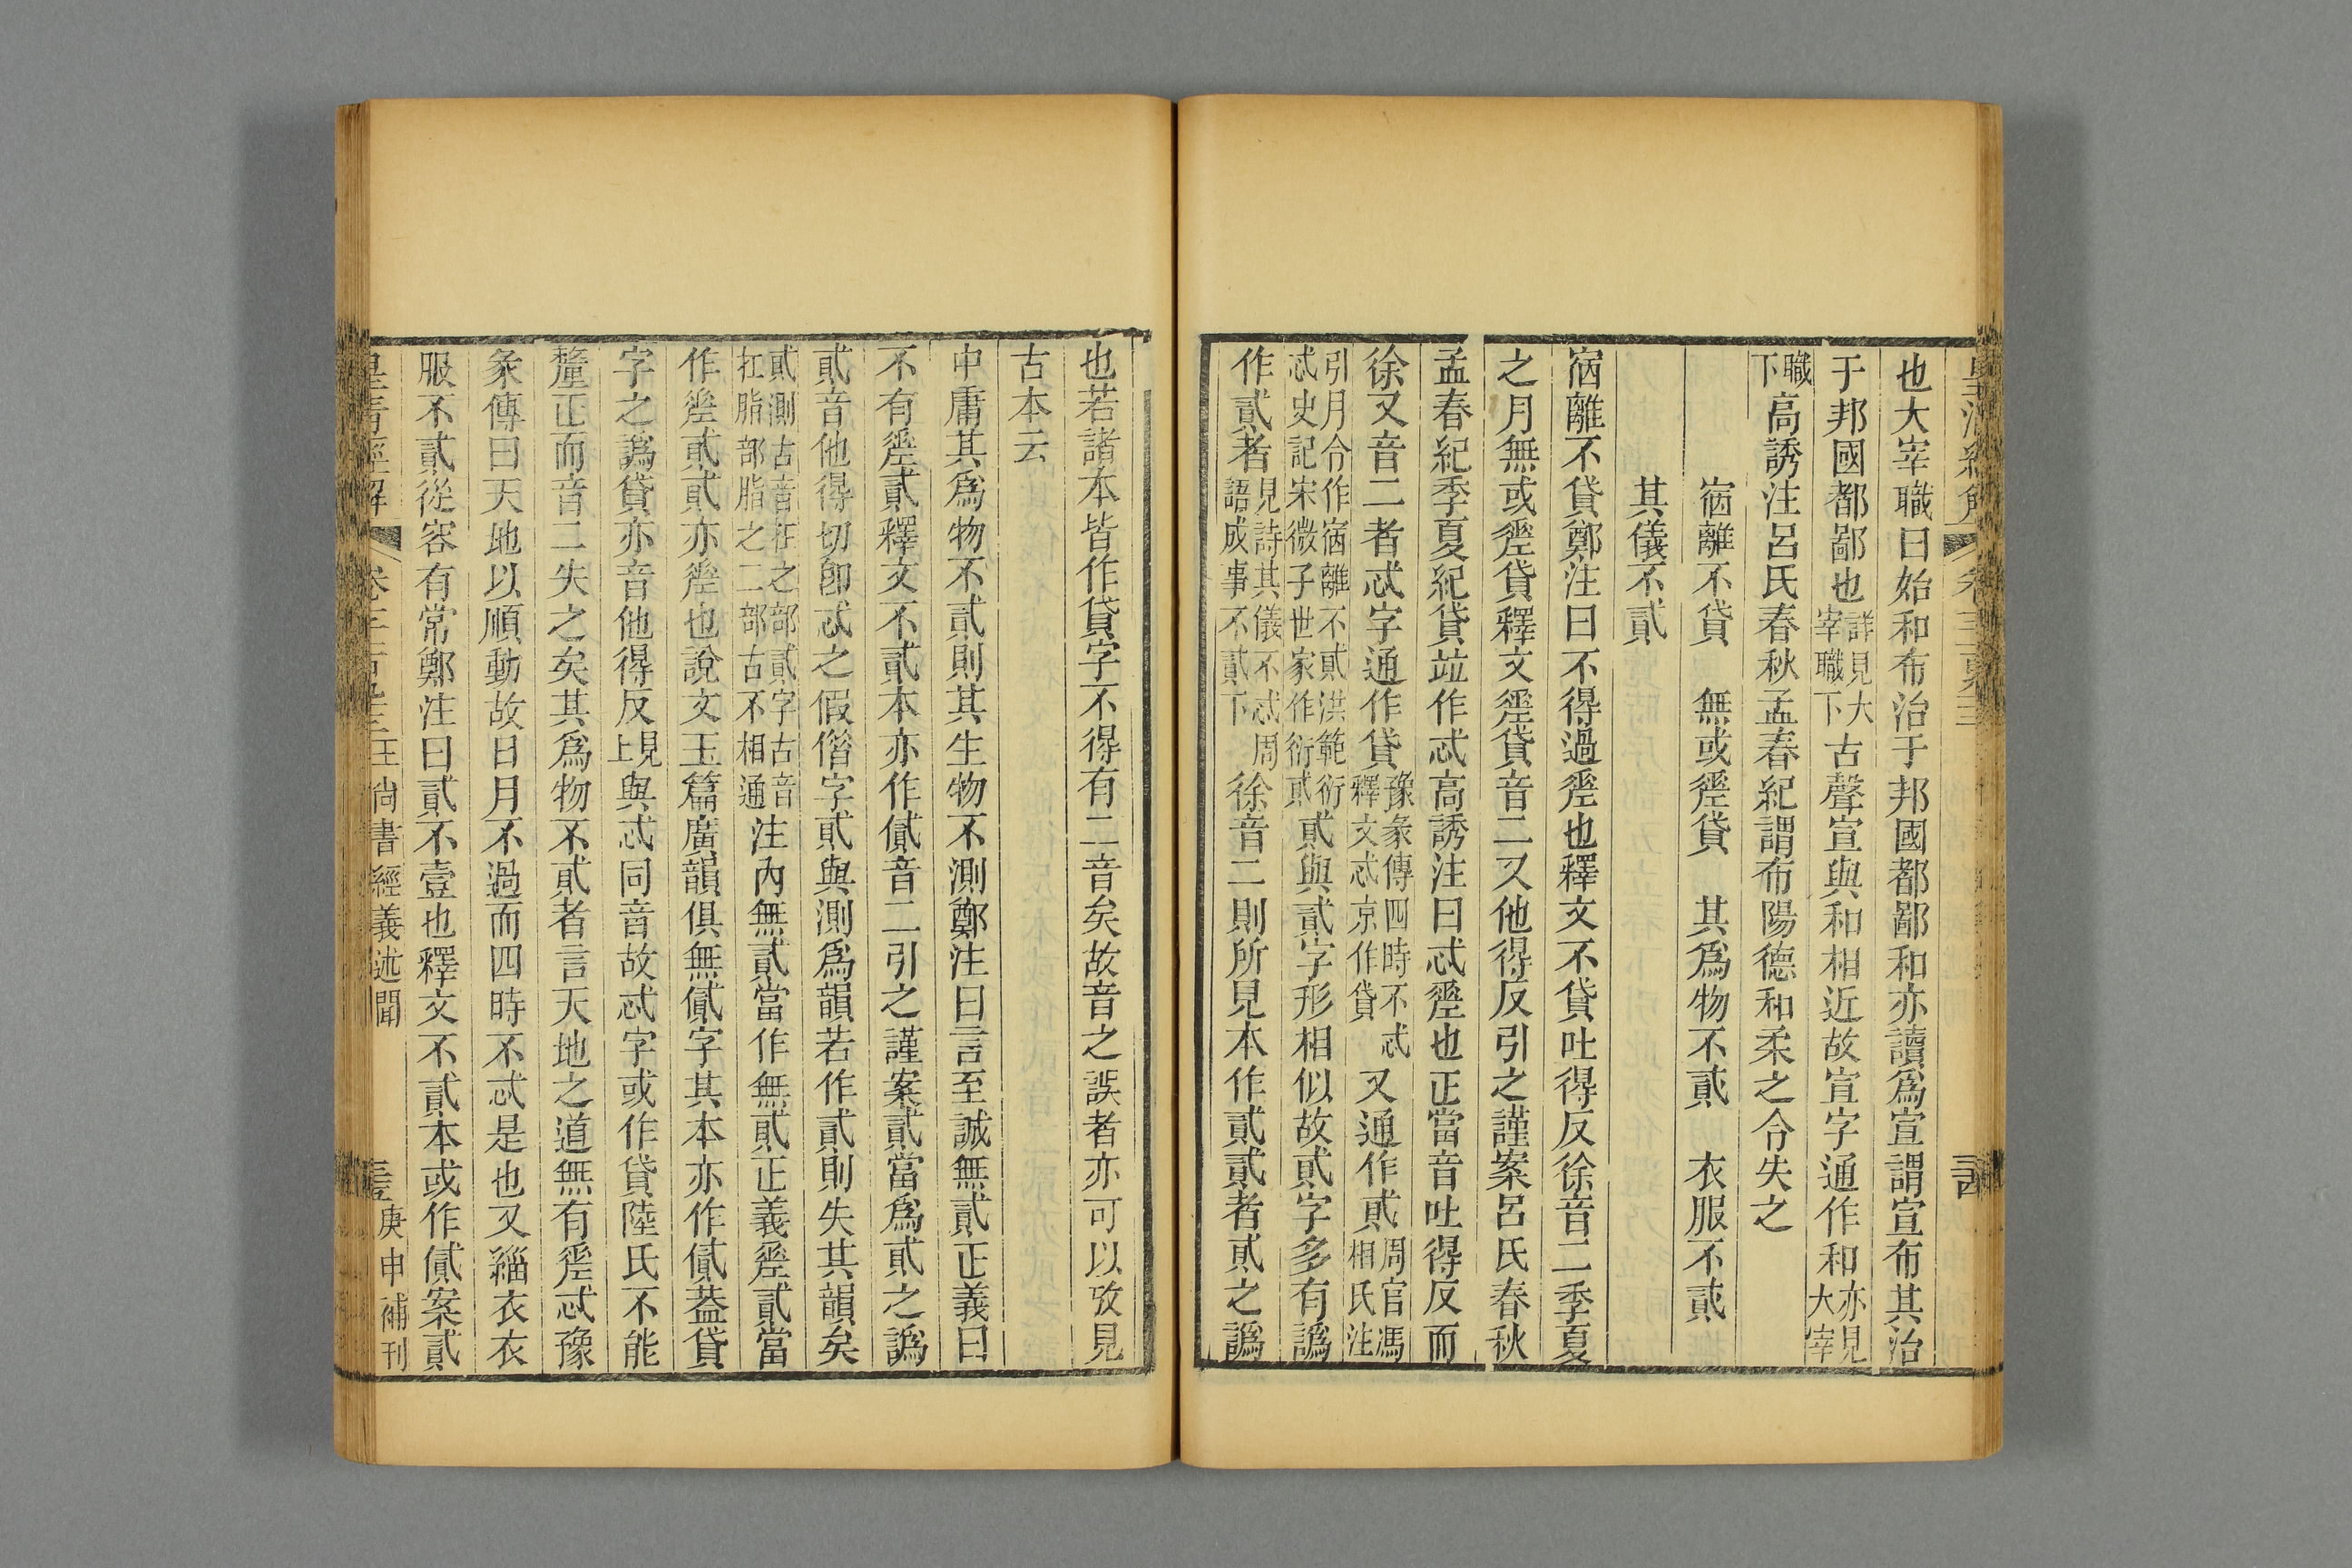 也大宰職曰始和布治于邦國都鄙和亦讀爲宣謂宣布其治
于邦國都鄙也詳見大宰職下古聲宣與和相近故宣字通作和亦見大宰
職下高誘注呂氏春秋孟春紀謂布陽德和柔之令失之
宿離不貸 無或差貸 其爲物不貳 衣服不貳
其儀不貳
宿離不貸鄭注曰不得過差也釋文不貸吐得反徐音二季夏
之月無或差貸釋文差貸音二又他得反引之謹案呂氏春秋
孟春紀季夏紀貸竝作忒高誘注曰忒差也正當音吐得反而
徐又音二者忒字通作貸豫彖傳四時不忒釋文忒京作貸又通作貣周官馮相氏注
引月令作宿離不貣洪範衍忒史記宋微子世家作衍貣貣與貳字形相似故貣字多有譌
作貳者見詩其儀不忒周語成事不貳下徐音二則所見本作貳貳者貣之譌
也若諸本皆作貸字不得有二音矣故音之誤者亦可以攷見
古本云
中庸其爲物不貳則其生物不測鄭注曰言至誠無貳正義曰
不有差貳釋文不貳本亦作貮音二引之謹案貳當爲貣之譌
貣音他得切卽忒之假借字貣與測爲韻若作貳則失其韻矣
貣測古音在之部貳字古音在脂部脂之二部古不相通注內無貳當作無貣正義差貳當
作差貣貣亦差也說文玉篇廣韻俱無貮字其本亦作貮葢貸
字之譌貸亦音他得反見上與忒同音故忒字或作貸陸氏不能
釐正而音二失之矣其爲物不貣者言天地之道無有差忒豫
彖傳曰天地以順動故日月不過而四時不忒是也又緇衣衣
服不貳從容有常鄭注曰貳不壹也釋文不貳本或作貮案貳
皇清經解 王尚書經義述聞 庚申補刊